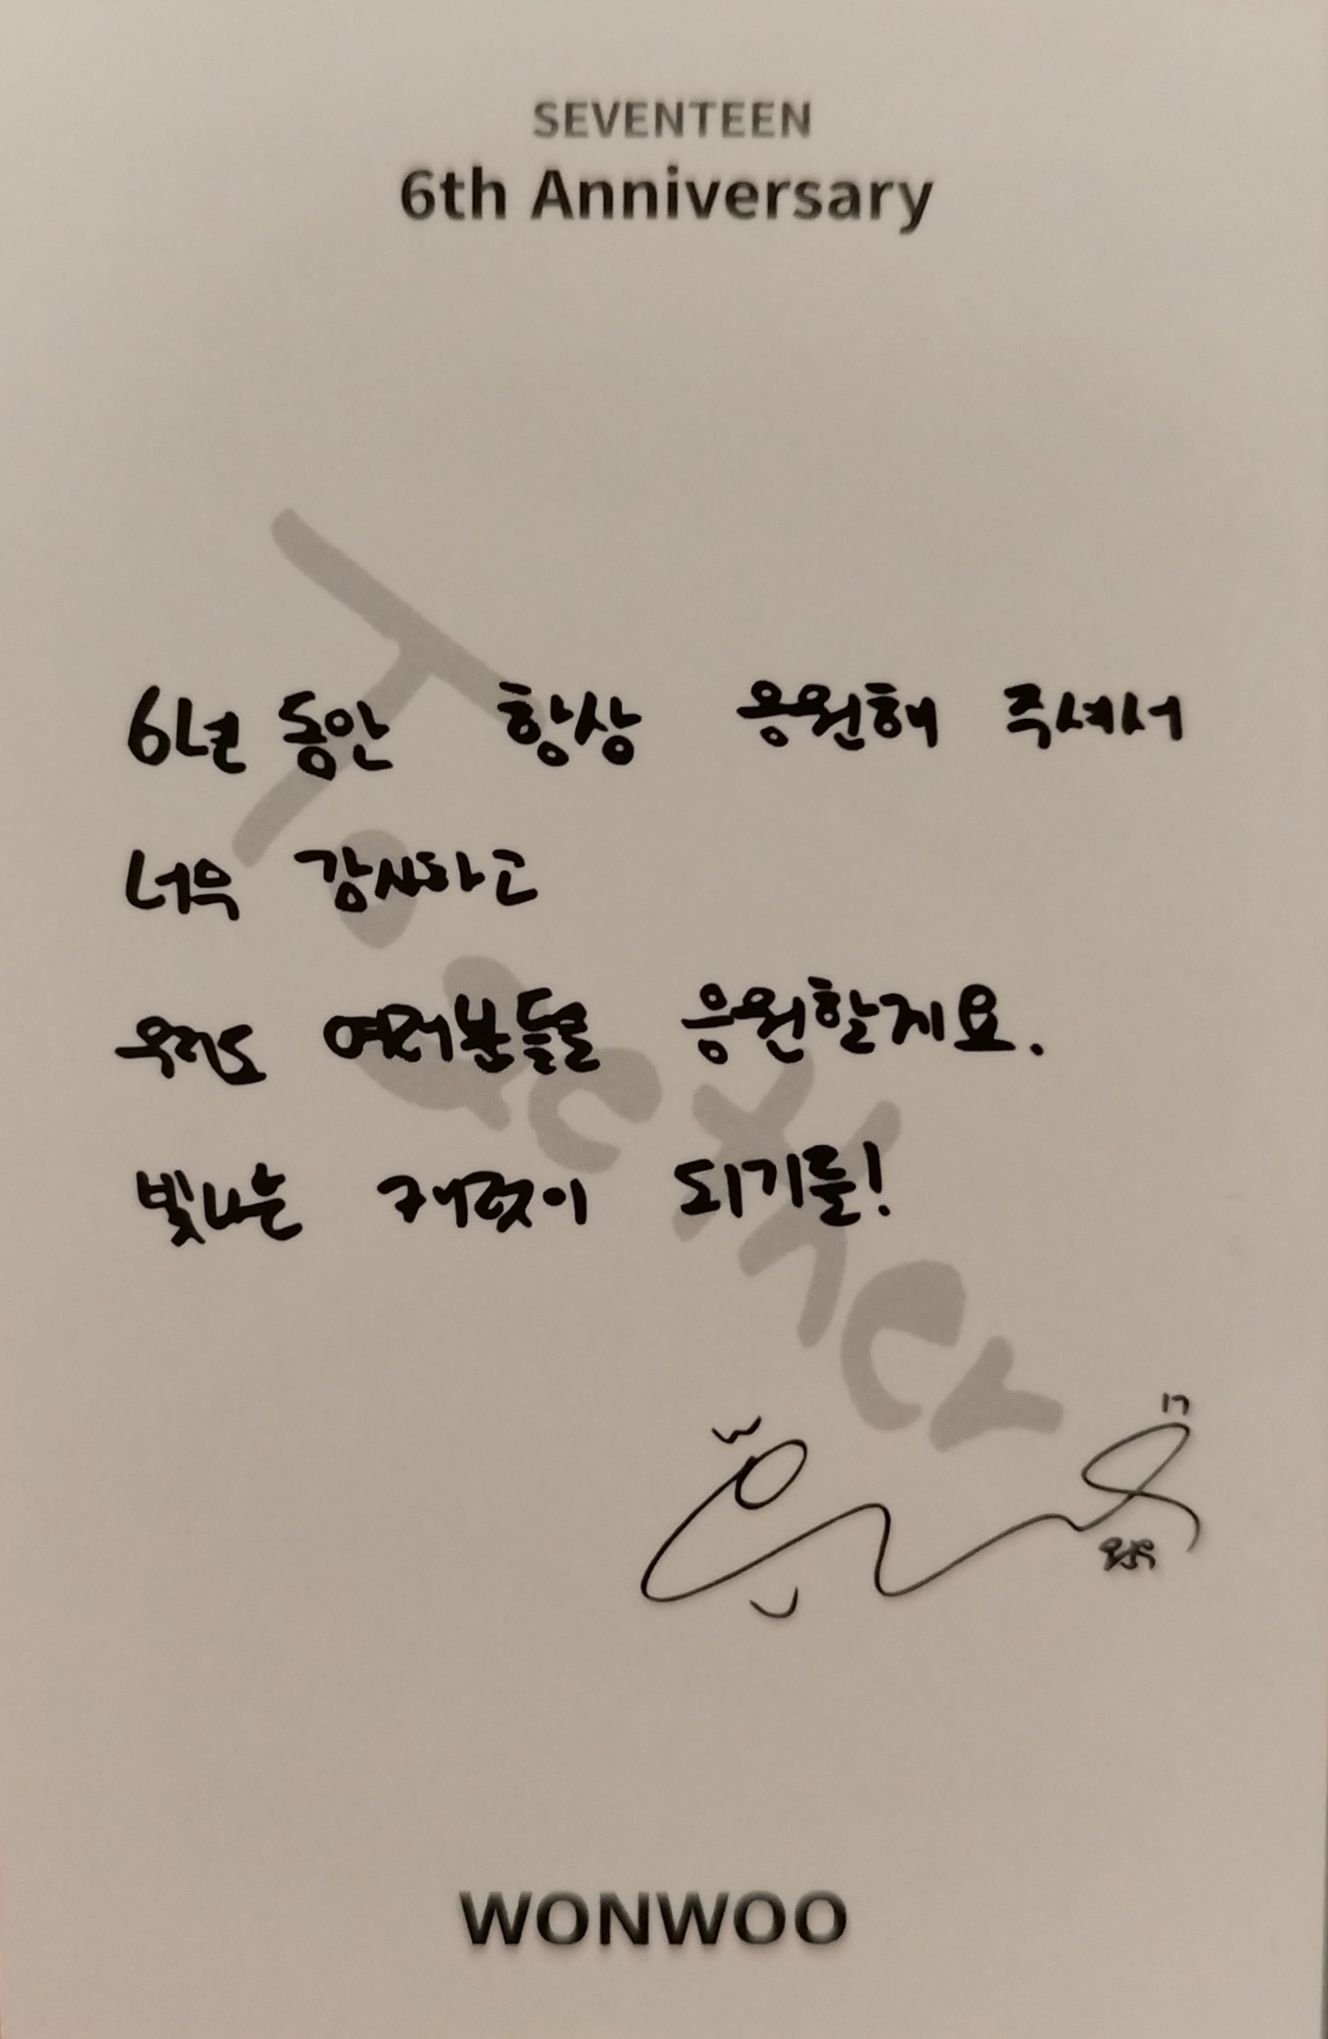 SEVENTEEN
6th Anniversary
Together
6년 동안 항상 응원해 주셔서
너무 감사하고
우리도 여러분들을 응원할게요.
빛나는 캐럿이 되기를!
17
원우
WONWOO